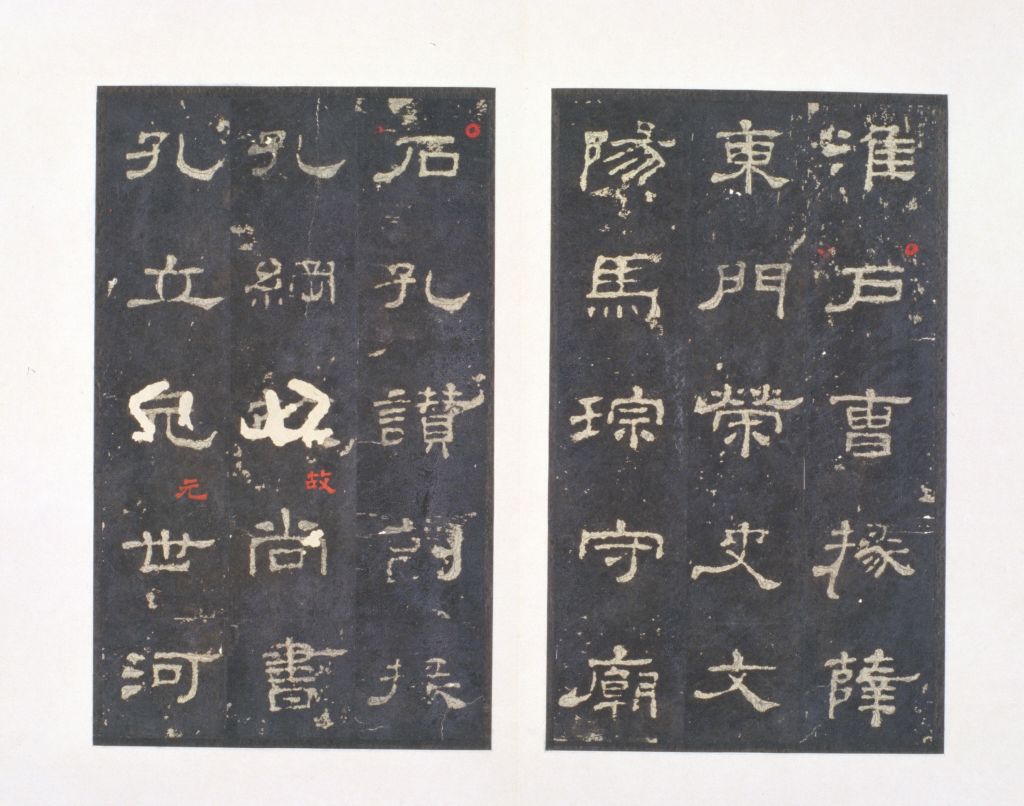 淮戶曹掾薛
東門榮史文
陽馬琮守廟
石孔讃副掾
孔綱尚書
故
孔立世河
元